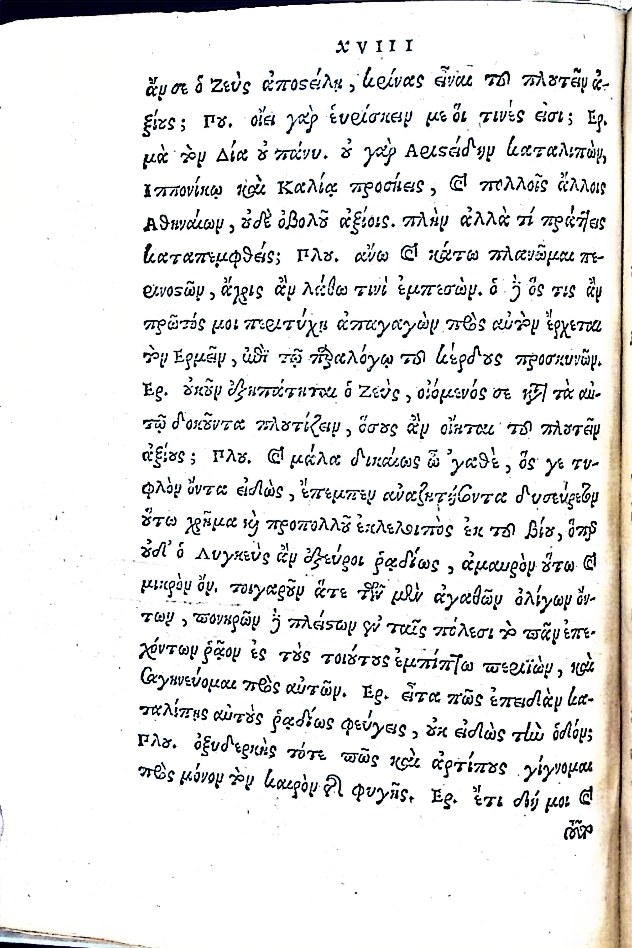 XVIII
ἄν σε ὁ Ζεὺς ἀποστείλῃ, κρίνας εἶναι τοῦ πλουτεῖν ἀ-
ξίους; Πλου. οἴει γὰρ εὑρίσκειν με ὅι τινές εἰσι; Ερ.
μὰ τὸν Δία οὐ πάνυ. οὐ γὰρ Αριστείδην καταλιπὼν,
Ιππονίκῳ καὶ Καλίᾳ προσῄεις, καὶ πολλοῖς ἄλλοις
Αθηναίων, οὐδὲ ὀβολοῦ ἀξίοις. πλὴν ἀλλὰ τί πράττεις
καταπεμφθείς; Πλου. ἄνω καὶ κάτω πλανῶμαι πε-
ρινοστῶν, ἄχρις ἂν λάθω τινὶ ἐμπεσών. ὁ δὲ ὅς τις ἂν
πρῶτός μοι περιτύχῃ ἀπαγαγὼν πρὸς αὐτὸν ἔρχεται
τὸν Ερμῆν, ἐπὶ τῷ παραλόγῳ τοῦ κέρδους προσκυνῶν.
Ερ. οὐκοῦν ἐξηπάτηται ὁ Ζεὺς, οἰόμενός σε κατὰ τὰ αὐ-
τῷ δοκοῦντα πλουτίζειν, ὅσους ἂν οἴηται τοῦ πλουτεῖν
ἀξίους; Πλου. καὶ μάλα δικαίως ὦ 'γαθὲ, ὅς γε τυ-
φλὸν ὄντα εἰδὼς, ἔπεμπεν ἀναζητήσοντα δυσεύρετον
οὕτω χρῆμα καὶ προπολλοῦ ἐκλελοιπὸς ἐκ τοῦ βίου, ὅπερ
οὐδ' ὁ Λυγκεὺς ἂν ἐξεύροι ῥᾳδίως, ἀμαυρὸν οὕτω καὶ
μικρὸν ὄν. τοιγαροῦν ἅτε τῶν μὲν ἀγαθῶν ὀλίγων ὄν-
των, πονηρῶν δὲ πλείστων ἐν ταῖς πόλεσι τὸ πᾶν ἐπε-
χόντων ῥᾷον ἐς τοὺς τοιούτους ἐμπίπτω περιϊὼν, καὶ
σαγηνεύομαι πρὸς αὐτῶν. Ερ. εἶτα πῶς ἐπειδὰν κα-
ταλίπῃς αὐτοὺς ῥᾳδίως φεύγεις, οὐκ εἰδὼς τὴν ὁδόν;
Πλου. ὀξυδερκὴς τότε πῶς καὶ ἀρτίπους γίγνομαι
πρὸς μόνον τὸν καιρὸν τῆς φυγῆς. Ερ. ἔτι δή μοι καὶ